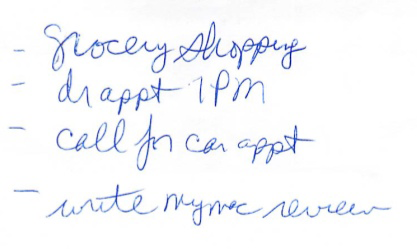 - grocery shopping
- dr appt 1PM
- call for car appt
- write mymac review